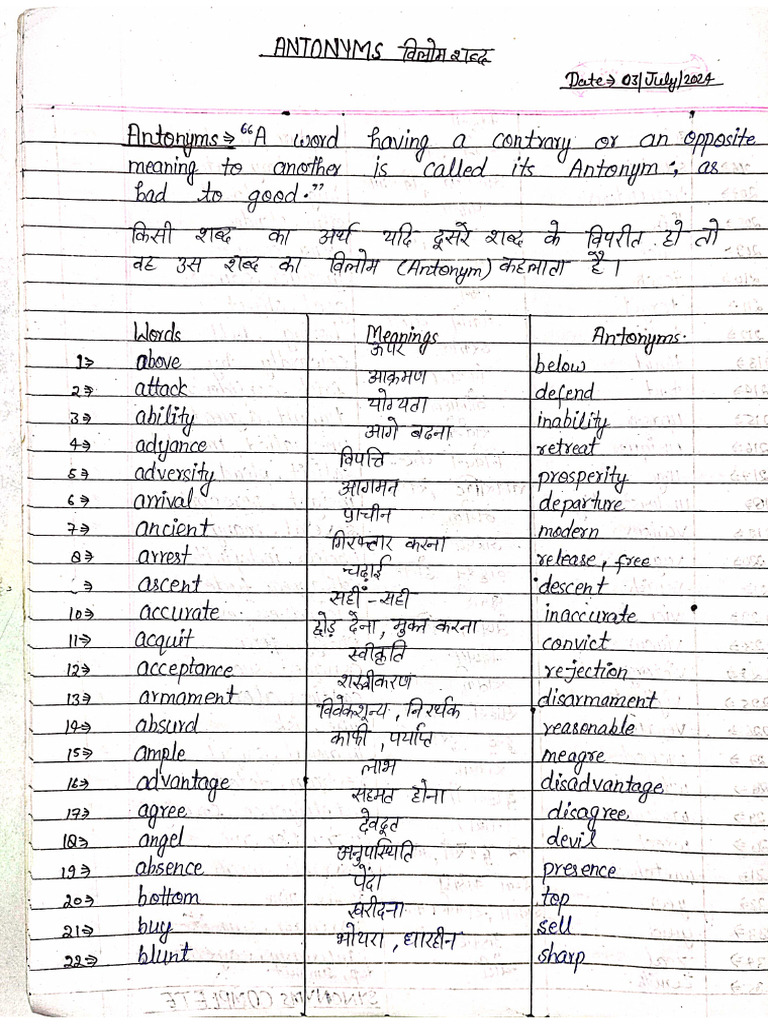 ANTONYMS विलोम शब्द
Date→ 03/July/2024
Antonyms→ "A word having a contrary or an opposite
meaning to another is called its Antonym; as
bad to good."
किसी शब्द का अर्थ यदि दूसरे शब्द के विपरीत हो तो
वह उस शब्द का विलोम (Antonym) कहलाता है।
Words Meanings Antonyms.
1→ above ऊपर below
2→ attack आक्रमण defend
3→ ability योग्यता inability
4→ advance आगे बढना retreat
5→ adversity विपत्ति prosperity
6→ arrival आगमन departure
7→ ancient प्राचीन modern
8→ arrest गिरफ्तार करना release, free
→ ascent चढ़ाई descent
10→ accurate सही-सही inaccurate
11→ acquit छोड़ देना, मुक्त करना convict
12→ acceptance स्वीकृति rejection
13→ armament शस्त्रीकरण disarmament
14→ absurd विवेकशून्य, निरर्थक reasonable
15→ ample काफी, पर्याप्त meagre
16→ advantage लाभ disadvantage
17→ agree सहमत होना disagree
18→ angel देवदूत devil
19→ absence अनुपस्थिति presence
20→ bottom पेंदा top
21→ buy खरीदना sell
22→ blunt भोथरा, धारहीन sharp